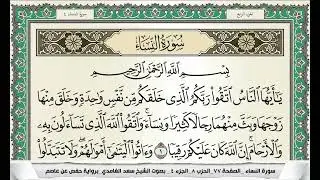 سُورَةُ النِّسَاءِ
بِسْمِ اللَّهِ الرَّحْمَٰنِ الرَّحِيمِ
يَٰٓأَيُّهَا النَّاسُ اتَّقُوا رَبَّكُمُ الَّذِى خَلَقَكُم مِّن نَّفْسٍ وَٰحِدَةٍ وَخَلَقَ مِنْهَا
زَوْجَهَا وَبَثَّ مِنْهُمَا رِجَالًا كَثِيرًا وَنِسَآءً ۚ وَاتَّقُوا اللَّهَ الَّذِى تَسَآءَلُونَ بِهِۦ
وَالْأَرْحَامَ ۚ إِنَّ اللَّهَ كَانَ عَلَيْكُمْ رَقِيبًا ١ وَءَاتُوا الْيَتَٰمَىٰٓ أَمْوَٰلَهُمْ ۖ وَلَا تَتَبَدَّلُوا
سورة النساء . الصفحة ٧٧ . الحزب ٨ . الجزء ٤ . بصوت الشيخ سعد الغامدي برواية حفص عن عاصم